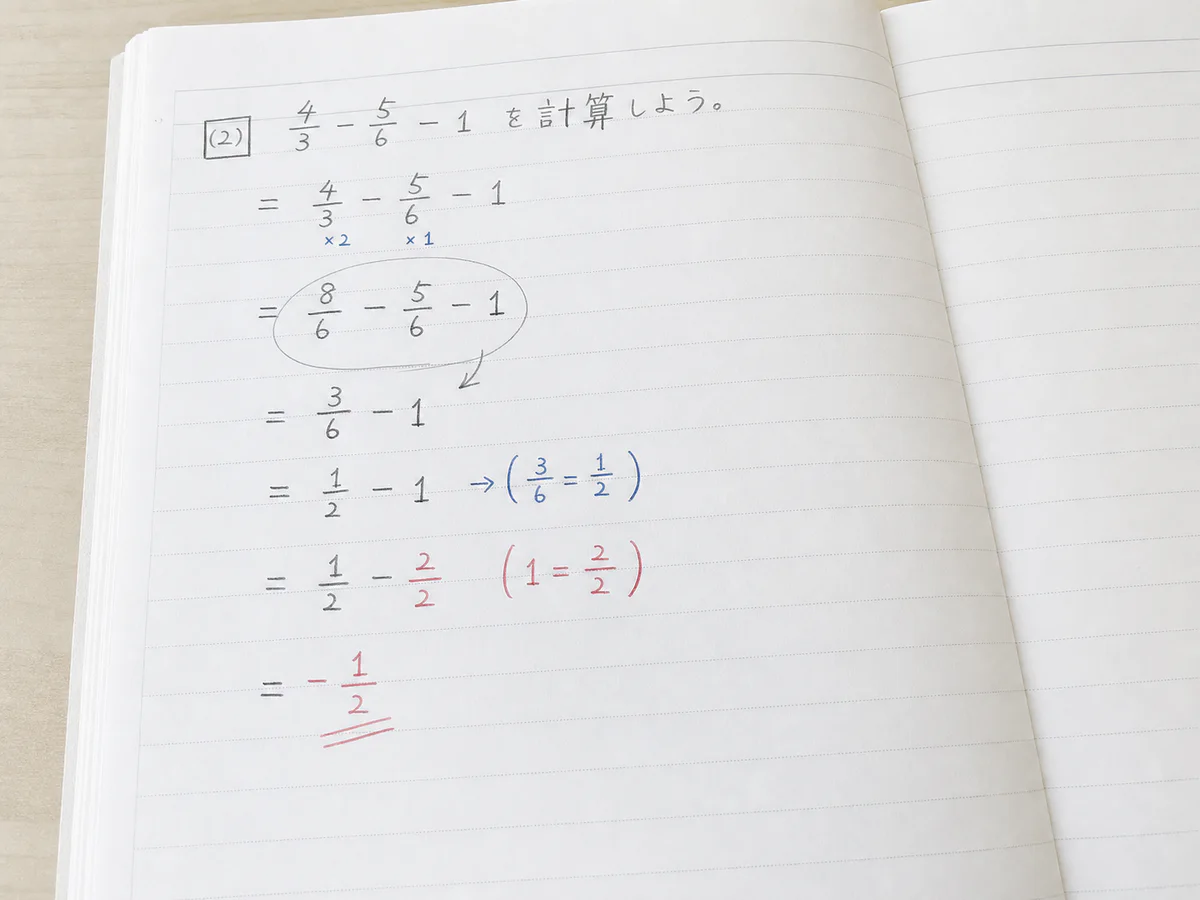 (2) 4/3 − 5/6 − 1 を計算しよう。
= 4/3 − 5/6 − 1
×2 ×1
= 8/6 − 5/6 − 1
= 3/6 − 1
= 1/2 − 1 → (3/6 = 1/2)
= 1/2 − 2/2 (1 = 2/2)
= − 1/2